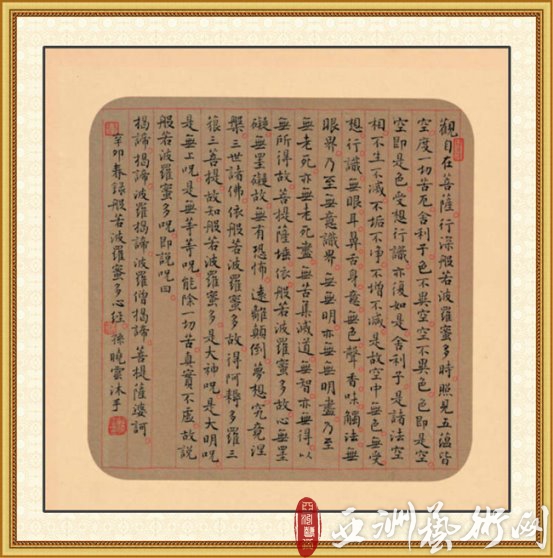 觀自在菩薩行深般若波羅蜜多時照見五蕴皆
空度一切苦厄舍利子色不異空空不異色色即是空
空即是色受想行識亦復如是舍利子是諸法空
相不生不滅不垢不淨不增不減是故空中無色無受
想行識無眼耳鼻舌身意無色聲香味觸法無
眼界乃至無意識界無無明亦無無明盡乃至
無老死亦無老死盡無苦集滅道無智亦無得以
無所得故菩提薩埵依般若波羅蜜多故心無罣
礙無罣礙故無有恐怖遠離顛倒夢想究竟涅
槃三世諸佛依般若波羅蜜多故得阿耨多羅三
藐三菩提故知般若波羅蜜多是大神呪是大明呪
是無上呪是無等等呪能除一切苦真實不虛故說
般若波羅蜜多呪即說呪曰
揭諦揭諦波羅揭諦波羅僧揭諦菩提薩婆訶
辛卯春錄般若波羅蜜多心經孫曉雲沐手
亚洲藝術网